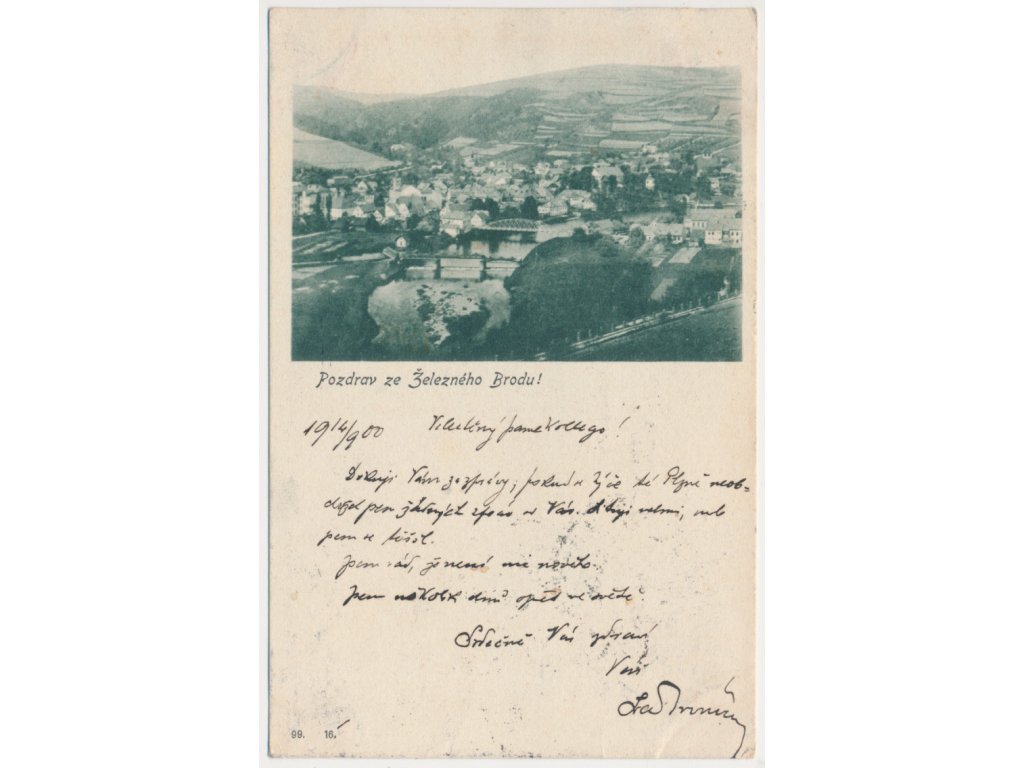 Pozdrav ze Železného Brodu!
19 14/9 00 Velectěný pane kollego!
Děkuji Vám za zprávy, pokud se týče té Plzně neob-
držel jsem žádných zpráv od Vás. velmi, neb
jsem se těšil.
Jsem rád, že není nic nového.
Jsem několik dnů opět ve světě.
Srdečně Vás zdraví
Váš
99. 16.